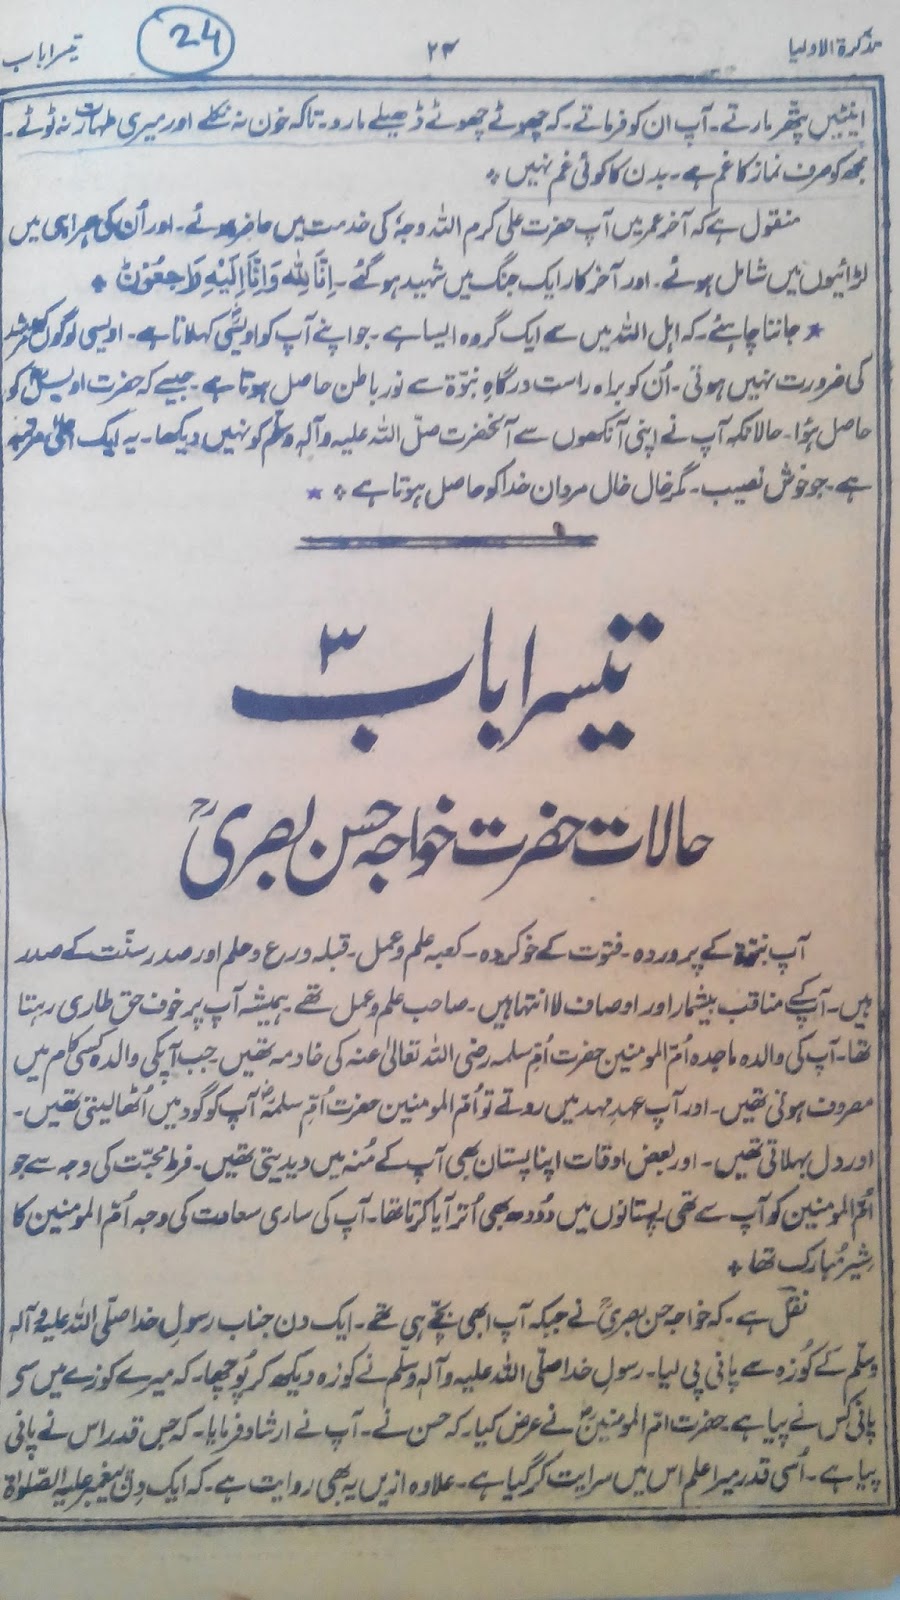 تذکرۃ الاولیا ۲۴ 24 تیسرا باب
اینٹیں پتھر مارتے۔ آپ ان کو فرماتے۔ کہ چھوٹے چھوٹے ڈھیلے مارو۔ تاکہ خون نہ نکلے اور میری طہارت نہ ٹوٹے۔
مجھ کو صرف نماز کا غم ہے۔ بدن کا کوئی غم نہیں
منقول ہے کہ آخر عمر میں آپ حضرت علی کرم اللہ وجہٗ کی خدمت میں حاضر ہوئے۔ اور اُن کی ہمراہی میں
لڑائیوں میں شامل ہوئے۔ اور آخر کار ایک جنگ میں شہید ہو گئے۔ اِنَّا لِلّٰہِ وَاِنَّا اِلَیْہِ رَاجِعُوْنَ
★ جاننا چاہئے۔ کہ اہل اللہ میں سے ایک گروہ ایسا ہے۔ جو اپنے آپ کو اویسیؓ کہلاتا ہے۔ اویسی لوگوں کو مرشد
کی ضرورت نہیں ہوتی۔ اُن کو براہ راست درگاہِ نبوّۃ سے نور باطن حاصل ہوتا ہے۔ جیسے کہ حضرت اویسؓ کو
حاصل ہؤا۔ حالانکہ آپ نے اپنی آنکھوں سے آنحضرت صلّی اللہ علیہ وآلہٖ وسلّم کو نہیں دیکھا۔ یہ ایک اعلیٰ مرتبہ
ہے۔ جو خوش نصیب۔ مگر خال خال مردان خدا کو حاصل ہوتا ہے ★
تیسرا باب ۳
حالات حضرت خواجہ حسن بصریؒ
آپ نبوّۃ کے پروردہ۔ فتوت کے خو کردہ۔ کعبہ علم و عمل۔ قبلہ ورع و حلم اور صدر سنّت کے صدر
ہیں۔ آپ کے مناقب بیشمار اور اوصاف لا انتہا ہیں۔ صاحب علم و عمل تھے۔ ہمیشہ آپ پر خوف حق طاری رہتا
تھا۔ آپ کی والدہ ماجدہ امّ المومنین حضرت اُمّ سلمہ رضی اللہ تعالیٰ عنہ کی خادمہ تھیں۔ جب آپکی والدہ کسی کام میں
مصروف ہوتی تھیں۔ اور آپ عہدِ مہد میں روتے تو اُمّ المومنین حضرت اُمّ سلمہؓ آپ کو گود میں اُٹھا لیتی تھیں۔
اور دل بہلاتی تھیں۔ اور بعض اوقات اپنا پستان بھی آپ کے مُنہ میں دیدیتی تھیں۔ فرط محبّت کی وجہ سے جو
امّ المومنین کو آپ سے تھی پستانوں میں دُودھ بھی اُتر آیا کرتا تھا۔ آپ کی ساری سعادت کی وجہ امّ المومنین کا
شِیر مُبارک تھا
نقل ہے۔ کہ خواجہ حسن بصریؒ نے جبکہ آپ ابھی بچّے ہی تھے۔ ایک دن جناب رسولِ خدا صلّی اللہ علیہ وآلہٖ
وسلّم کے کُوزہ سے پانی پی لیا۔ رسولِ خدا صلّی اللہ علیہ وآلہٖ وسلّم نے کوزہ دیکھ کر پُوچھا۔ کہ میرے کوزے میں سے
پانی کس نے پیا ہے۔ حضرت امّ المومنینؓ نے عرض کیا۔ کہ حسن نے۔ آپ نے ارشاد فرمایا۔ کہ جس قدر اس نے پانی
پیا ہے۔ اُسی قدر میرا علم اس میں سرایت کر گیا ہے۔ علاوہ ازیں یہ بھی روایت ہے۔ کہ ایک دِن پیغمبر علیہ الصّلوٰۃ